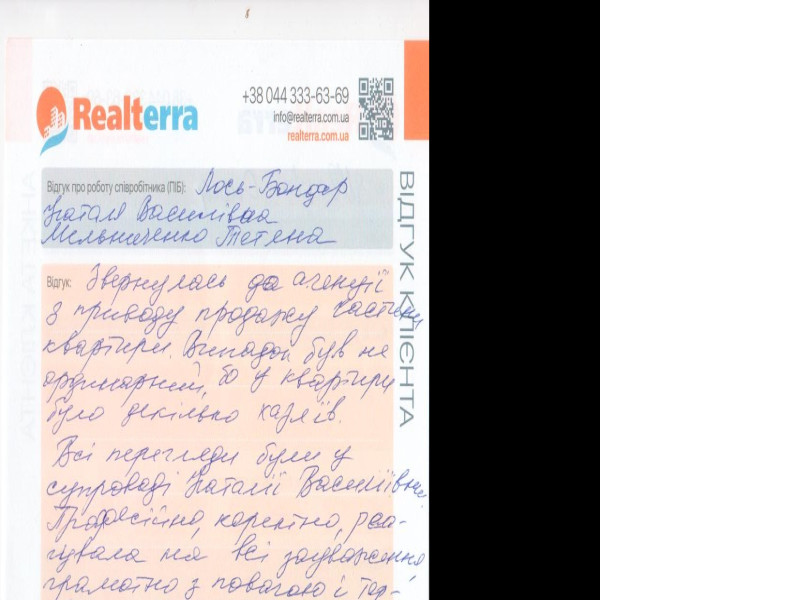 Realterra
+38 044 333-63-69
info@realterra.com.ua
realterra.com.ua
Відгук про роботу співробітника (ПІБ): Лось-Бондар
Наталя Василівна
Мельниченко Тетяна
ВІДГУК КЛІЄНТА
Відгук: Звернулась до агенції
з приводу продажу частини
квартири. Випадок був не
ординарний, бо у квартири
було декілька хазяїв.
Всі перегляди були у
супроводі Наталії Василівни
Професійно, коректно, реа-
гувала на всі зауваження,
грамотно з повагою і тер-